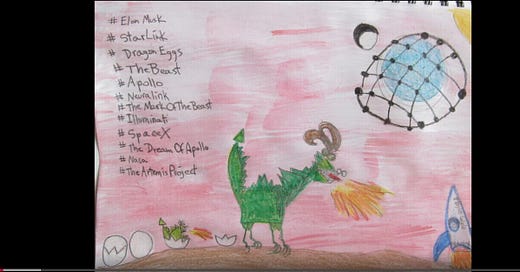 # Elon Musk
# StarLink
# Dragon Eggs
# TheBeast
# Apollo
# Neuralink
# The Mark Of The Beast
# Illuminati
# SpaceX
# The Dream Of Apollo
# Nasa
# The Artemis Project